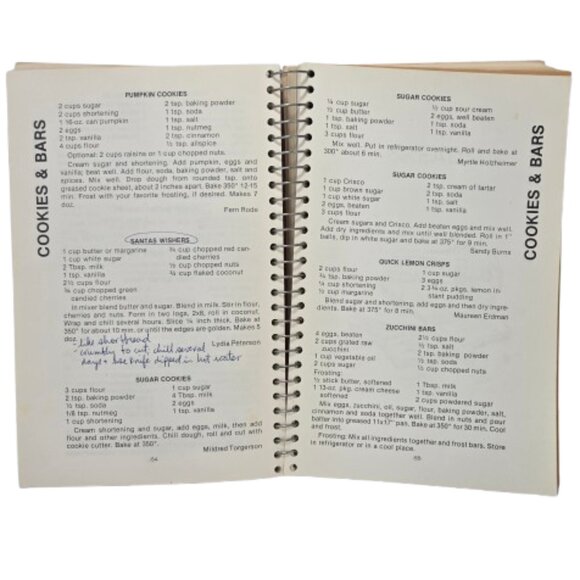 COOKIES & BARS
PUMPKIN COOKIES
2 cups sugar
2 cups shortening
1 16-oz. can pumpkin
2 eggs
2 tsp. vanilla
4 cups flour
2 tsp. baking powder
1 tsp. soda
1 tsp. salt
1 tsp. nutmeg
2 tsp. cinnamon
½ tsp. allspice
Optional: 2 cups raisins or 1 cup chopped nuts.
Cream sugar and shortening. Add pumpkin, eggs and
vanilla; beat well. Add flour, soda, baking powder, salt and
spices. Mix well. Drop dough from rounded tsp. onto
greased cookie sheet, about 2 inches apart. Bake 350° 12-15
min. Frost with your favorite frosting, if desired. Makes 7
doz.
Fern Rode
SANTAS WISHERS
1 cup butter or margarine
1 cup white sugar
2 Tbsp. milk
1 tsp. vanilla
2½ cups flour
¾ cup chopped green
candied cherries
¾ cup chopped red can-
died cherries
½ cup chopped nuts
¾ cup flaked coconut
In mixer blend butter and sugar. Blend in milk. Stir in flour,
cherries and nuts. Form in two logs, 2x8, roll in coconut.
Wrap and chill several hours. Slice ¼ inch thick. Bake
350° for 10 min. or until the edges are golden. Makes 5
doz.
Lydia Peterson
like shortbread
crumbly to cut, chill several
days + use knife dipped in hot water
SUGAR COOKIES
3 cups flour
2 tsp. baking powder
½ tsp. soda
1/8 tsp. nutmeg
1 cup shortening
1 cup sugar
4 Tbsp. milk
2 eggs
1 tsp. vanilla
Cream shortening and sugar, add eggs, milk, then add
flour and other ingredients. Chill dough, roll and cut with
cookie cutter. Bake at 350°.
Mildred Torgerson
-54-
SUGAR COOKIES
½ cup butter
1 tsp. baking powder
1 tsp. salt
3 cups flour
½ cup sour cream
2 eggs, well beaten
1 tsp. soda
1 tsp. vanilla
Mix well. Put in refrigerator overnight. Roll and bake at
300° about 6 min.
Myrtle Holtzheimer
SUGAR COOKIES
1 cup Crisco
1 cup brown sugar
1 cup white sugar
2 eggs, beaten
3 cups flour
2 tsp. cream of tartar
2 tsp. soda
1 tsp. salt
1 tsp. vanilla
Cream sugars and Crisco. Add beaten eggs and mix well.
Add dry ingredients and mix until well blended. Roll in 1"
balls, dip in white sugar and bake at 375° for 9 min.
Sandy Burns
QUICK LEMON CRISPS
2 cups flour
¾ tsp. baking powder
¼ cup shortening
½ cup margarine
1 cup sugar
3 eggs
2 3¾ oz. pkgs. lemon in-
stant pudding
Blend sugar and shortening, add eggs and then dry ingre-
dients. Bake at 375° for 8 min.
Maureen Erdman
ZUCCHINI BARS
4 eggs, beaten
2 cups grated raw
zucchini
1 cup vegetable oil
2 cups sugar
2½ cups flour
½ tsp. salt
2 tsp. baking powder
½ tsp. soda
½ cup chopped nuts
Frosting:
½ stick butter, softened
1 13-oz. pkg. cream cheese
softened
1 Tbsp. milk
1 tsp. vanilla
2 cups powdered sugar
Mix eggs, zucchini, oil, sugar, flour, baking powder, salt,
cinnamon and soda together well. Blend in nuts and pour
batter into greased 11x17" pan. Bake at 350° for 30 min. Cool
and frost.
Frosting: Mix all ingredients together and frost bars. Store
in refrigerator or in a cool place.
-55-
COOKIES & BARS